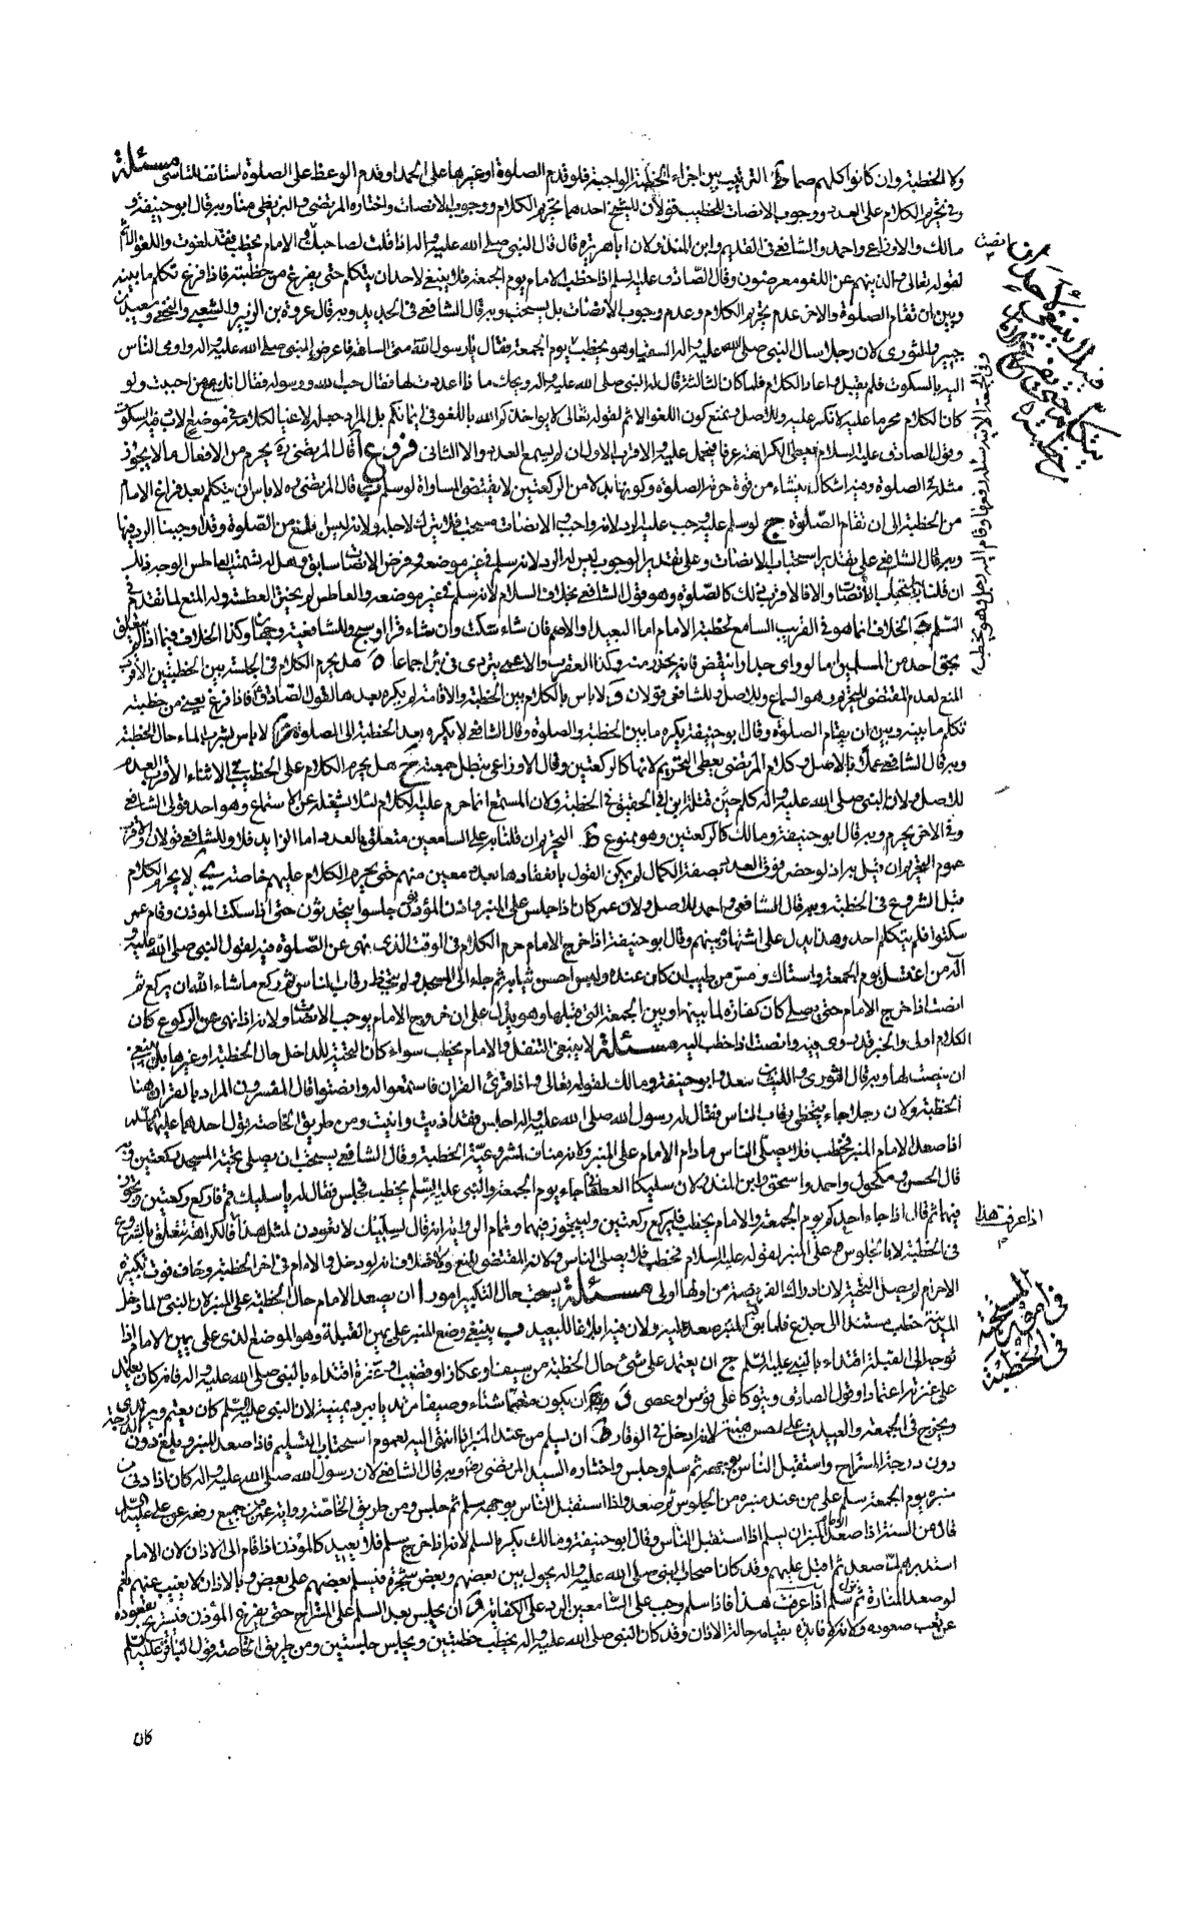 ولا الخطبة وان كانوا كلهم صما ط الترتيب بين اجزاء الخطبة الواجبة فلو قدم الصلوة او غيرها على الحمد او قدم الوعظ على الصلوة استانف للتاسى مسئلة
وفى تحريم الكلام على العدد ووجوب الانصات للخطيب قولان للشيخ احدهما تحريم الكلام ووجوب الانصات واختاره المرتضى والبزنطى منا وبه قال ابو حنيفة و
مالك والاوزاعى واحمد والشافعى فى القديم وابن المنذر لان ابا هريرة قال قال النبى صلى الله عليه واله اذا قلت لصاحبك والامام يخطب فقد لغوت واللغو الاثم
لقوله تعالى والذينهم عن اللغو معرضون وقال الصادق عليه السلم اذا خطب الامام يوم الجمعة فلا ينبغى لاحد ان يتكلم حتى يفرغ من خطبته فاذا فرغ تكلم ما بينه
وبين ان تقام الصلوة والاخر عدم تحريم الكلام وعدم وجوب الانصات بل يستحب وبه قال الشافعى فى الجديد وبه قال عروة بن الزبير والشعبى والنخعى وسعيد بن
جبير والثورى لان رجلا سال النبى صلى الله عليه واله السقيا وهو يخطب يوم الجمعة فقال يا رسول الله متى الساعة فاعرض النبى صلى الله عليه واله واومى الناس
اليه بالسكوت فلم يقبل واعاد الكلام فلما كان الثالثة قال له النبى صلى الله عليه واله ويحك ما ذا اعددت لها فقال حب الله ورسوله فقال انك مع من احببت ولو
كان الكلام محرما عليه لانكر عليه وللاصل ونمنع كون اللغو الاثم لقوله تعالى لا يواخذكم الله باللغو فى ايمانكم بل المراد جعله لاغيا لكلامه فى موضع الادب فيه السكوت
وقول الصادق عليه السلم يعطى الكراهة عرفا فيحمل عليه والاقرب الاول ان لم يسمع العدد والا الثانى فروع ا قال المرتضى ره يحرم من الافعال ما لا يجوز
مثله فى الصلوة وفيه اشكال ينشاء من قوة حرمة الصلوة وكونها بدلا من الركعتين لا يقتضى المساواة لو سلم ب قال المرتضى ره لا باس ان يتكلم بعد فراغ الامام
من الخطبة الى ان تقام الصلوة ج لو سلم عليه وجب عليه الرد لانه واجب والانصات مستحب فلا يترك لاجله ولانه ليس بابلغ من الصلوة وقد اوجبنا الرد فيها
وبه قال الشافعى على تقدير استحباب الانصات وعلى تقدير الوجوب ليس له الرد لانه سلم فى غير موضعه وفرض الانصات سابق وهل له تشميت العاطس الوجه ذلك
ان قلنا باستحباب الانصات والا فالاقرب ذلك كالصلوة وهو قول الشافعى بخلاف السلام لانه سلم فى غير موضعه والعاطس لم يختر العطسة وله المنع لما تقدم فى
السلم د الخلاف انما هو فى القريب السامع لخطبة الامام اما البعيد او الاصم فان شاء سكت وان شاء قرا او سبح وللشافعية وجهان وكذا الخلاف فيما اذا لم يتعلق
بحق احد من المسلمين اما لو راى جدارا ينقض فانه يحذر منه وكذا العقرب والاعمى يتردى فى بئر اجماعا ه هل يحرم الكلام فى الجلسة بين الخطبتين الاقرب
المنع لعدم المقتضى للتحريم وهو السماع وللاصل وللشافعى قولان و لا باس بالكلام بين الخطبة والاقامة ولم يكره بعدها لقول الصادق ع فاذا فرغ يعنى من خطبته
تكلم ما بينه وبين ان يقام الصلوة وقال ابو حنيفة يكره ما بين الخطبة والصلوة وقال الشافعى لا يكره بعد الخطبة الى الصلوة ز لا باس بشرب الماء حال الخطبة
وبه قال الشافعى عملا بالاصل وكلام المرتضى يعطى التحريم لانها كالركعتين وقال الاوزاعى تبطل جمعته ح هل يحرم الكلام على الخطيب فى الاثناء الاقرب العدم
للاصل ولان النبى صلى الله عليه واله كلم حين قتلة ابن ابى الحقيق فى الخطبة ولان المستمع انما حرم عليه الكلام لئلا يشغله عن الاستماع وهو احد قولى الشافعى
وفى الاخر يحرم وبه قال ابو حنيفة ومالك كالركعتين وهو ممنوع ط التحريم ان قلنا به على السامعين متعلق بالعدد اما الزايد فلا وللشافعى قولان والاقرب
عموم التحريم ان قيل به اذ لو حضر فوق العدد بصفة الكمال لم يكن القول بانعقادها بعدد معين منهم حتى يحرم الكلام عليهم خاصة ى لا يحرم الكلام
قبل الشروع فى الخطبة وبه قال الشافعى واحمد للاصل ولان عمر كان اذا جلس على المنبر واذن المؤذن جلسوا يتحدثون حتى اذا سكت الموذن وقام عمر
سكتوا فلم يتكلم احد وهذا يدل على اشتهاره بينهم وقال ابو حنيفة اذا خرج الامام حرم الكلام فى الوقت الذى نهى عن الصلوة فيه لقول النبى صلى الله عليه و
اله من اغتسل يوم الجمعة واستاك ومس من طيب ان كان عنده ولبس احسن ثيابه ثم جاء الى المسجد ولم يتخط رقاب الناس ثم ركع ما شاء الله ان يركع ثم
انصت اذا خرج الامام حتى يصلى كان كفارة لما بينها وبين الجمعة التى قبلها وهو يدل على ان خروج الامام يوجب الانصات ولانه اذا نهى عن الركوع كان
الكلام اولى والخبر قد روى فيه وانصت اذا خطب اليه مسئلة لا ينبغى التنفل والامام يخطب سواء كان التحية للداخل حال الخطبة او غيرها بل ينبغى
ان ينصت لها وبه قال الثورى والليث بن سعد وابو حنيفة ومالك لقوله تعالى واذا قرئ القران فاستمعوا له وانصتوا قال المفسرون المراد بالقران هنا
الخطبة ولان رجلا جاء يتخطى رقاب الناس فقال له رسول الله صلى الله عليه واله اجلس فقد اذيت وانيت ومن طريق الخاصة قول احدهما عليهما السلم
اذا صعد الامام المنبر فخطب فلا يصلى الناس ما دام الامام على المنبر ولانه مناف لمشروعية الخطبة وقال الشافعى يستحب ان يصلى تحية المسجد ركعتين وبه
قال الحسن ومكحول واحمد واسحق وابن المنذر لان سليكا الغطفانى جاء يوم الجمعة والنبى عليه السلم يخطب فجلس فقال له يا سليك قم فاركع ركعتين وتجوز
فيهما ثم قال اذا جاء احدكم يوم الجمعة والامام يخطب فليركع ركعتين وليتجوز فيهما وتمام الرواية انه قال لسليك لا تعودن لمثل هذا فالكراهة تتعلق بالشروع
فى الخطبة لا بالجلوس على المنبر لقوله عليه السلام فخطب فلا يصلى الناس ولان المقتضى للمنع ولا خلاف فى انه لو دخل والامام فى اخر الخطبة وخاف فوت تكبيرة
الاحرام لم يصل التحية لان ادراك الفريضة من اولها اولى مسئلة يستحب حال التكبير امور ا ان يصعد الامام حال الخطبة على المنبر لان النبى ص لما دخل
المدينة خطب مستندا الى جذع فلما بنى المنبر صعد عليه ولان فيه ابلاغا للبعيد ب ينبغى وضع المنبر على يمين القبلة وهو الموضع الذى على يمين الامام اذا
توجه الى القبلة اقتداء بالنبى عليه السلم ج ان يعتمد على شئ حال الخطبة من سيف او عكاز او قضيب او عنزة اقتداء بالنبى صلى الله عليه واله فانه كان يعتمد
على عنزته اعتمادا وقول الصادق ويتوكا على قوس او عصى د ان يكون متعمما شتاء وصيفا مرتديا ببرد يمنية لان النبى عليه السلم كان يعتم ويرتدى
ويخرج فى الجمعة والعيدين على احسن هيئة ولانه ادخل فى الوقار ه ان يسلم من عند المنبر اذا انتهى اليه لعموم استحباب التسليم فاذا صعد المنبر وبلغ دون الدرجة
دون درجة المستراح واستقبل الناس بوجهه ثم سلم وجلس واختاره السيد المرتضى رضه وبه قال الشافعى لان رسول الله صلى الله عليه واله كان اذا دنى من
منبره يوم الجمعة سلم على من عند منبره من الجلوس ثم صعد واذا استقبل الناس بوجهه سلم ثم جلس ومن طريق الخاصة رواية عمرو بن جميع رفعه عن على عليه السلم
قال من السنة اذا صعد الامام المنبر ان يسلم اذا استقبل الناس وقال ابو حنيفة ومالك يكره السلم لانه اذا خرج سلم فلا يعيد كالمؤذن اذا قام الى الاذان لان الامام
استدبرهم لما صعد ثم اقبل عليهم وقد كان اصحاب النبى صلى الله عليه واله يحول بين بعضهم وبعض شجرة فيسلم بعضهم على بعض وبالاذان لا يغيب عنهم نعم
لو صعد المنارة ثم نزل سلم اذا عرفت هذا فاذا سلم وجب على السامعين الرد على الكفاية و ان يجلس بعد السلم على المستراح حتى يفرغ المؤذن فيستريح بقعوده
عن تعب صعوده ولانه لا فايدة بقيامه حالة الاذان وقد كان النبى صلى الله عليه واله يخطب خطبتين ويجلس جلستين ومن طريق الخاصة قول الباقر عليه السلم
كان
وفى الجمعة الاتية سئله رفعها وقام اليه رجل وهو يخطب
اذا عرفت هذا
فى امور مستحبة
فى الخطبة